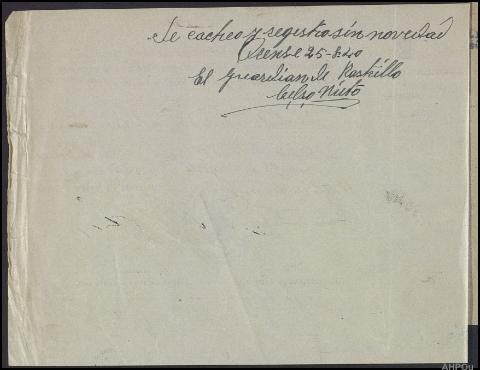 Se cacheo y registro sin novedad
Orense 25-8-40
El guardian de Rastrillo
Celso Nieto
AHPOu